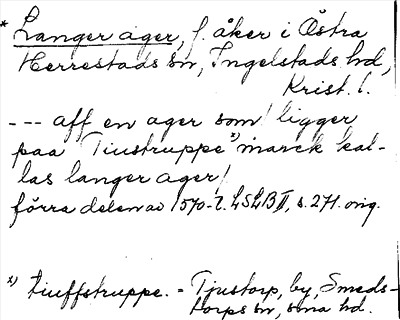 * Langer ager, f. åker i Östra
Herrestads sn, Ingelstads hd,
Krist. l.
--- aff en ager som ligger
paa Tiustruppe x) marck kal-
las langer ager/
förra delen av 1570-t. LSLB II, s. 271. orig.
x) tiuffstruppe. = Tjustorp, by, Smeds-
torps sn, sma hd.